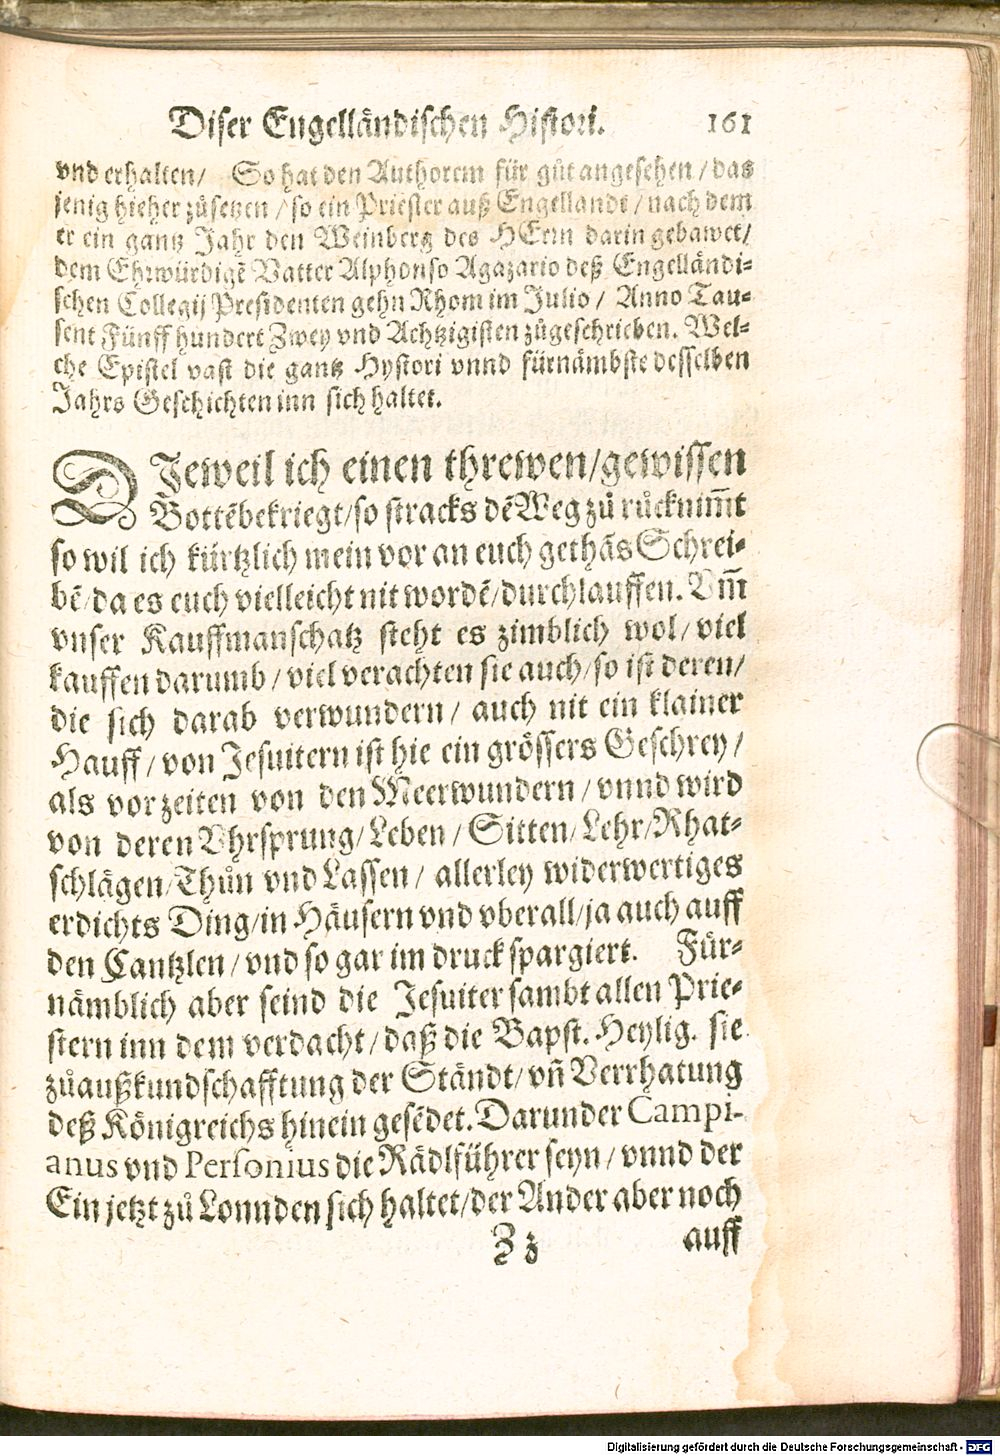 Diser Engelländischen Histori. 161
vnd erhalten/ So hat den Authorem für gůt angesehen / das
jenig hieher zůsetzen / so ein Priester auß Engellandt / nach dem
er ein gantz Jahr den Weinberg des HErrn darin gebawet/
dem Ehrwürdigē Vatter Alphonso Agazario deß Engelländi-
schen Collegij Presidenten gehn Rhom im Julio / Anno Tau-
sent Fünff hundert Zwey vnd Achtzigisten zůgeschrieben. Wel-
che Epistel vast die gantz Hystori vnnd fürnämbste desselben
Jahrs Geschichten inn sich haltet.
DJeweil ich einen threwen/gewissen
Bottē bekriegt/so stracks dē Weg zů růck nim̄t
so wil ich kürtzlich mein vor an euch gethās Schrei-
bē/da es euch vielleicht nit wordē/durchlauffen. Vm̄
vnser Kauffmanschatz steht es zimblich wol/ viel
kauffen darumb / viel verachten sie auch/ so ist deren/
die sich darab verwundern / auch nit ein klainer
Hauff / von Jesuitern ist hie ein grössers Geschrey /
als vor zeiten von den Meerwundern / vnnd wird
von deren Vhrsprung/ Leben / Sitten/ Lehr/ Rhat-
schlägen/Thůn vnd Lassen / allerley widerwertiges
erdichts Ding/in Häusern vnd vberall/ja auch auff
den Cantzlen / vnd so gar im druck spargiert. Für-
nämblich aber seind die Jesuiter sambt allen Prie-
stern inn dem verdacht / daß die Bapst. Heylig. sie
zůaußkundschafftung der Ständt/ vn̄ Verrhatung
deß Königreichs hinein gesēdet. Darunder Campi-
anus vnd Personius die Rädlführer seyn / vnnd der
Ein jetzt zů Lonnden sich haltet/der Ander aber noch
Zz auff
Digitalisierung gefördert durch die Deutsche Forschungsgemeinschaft - DFG